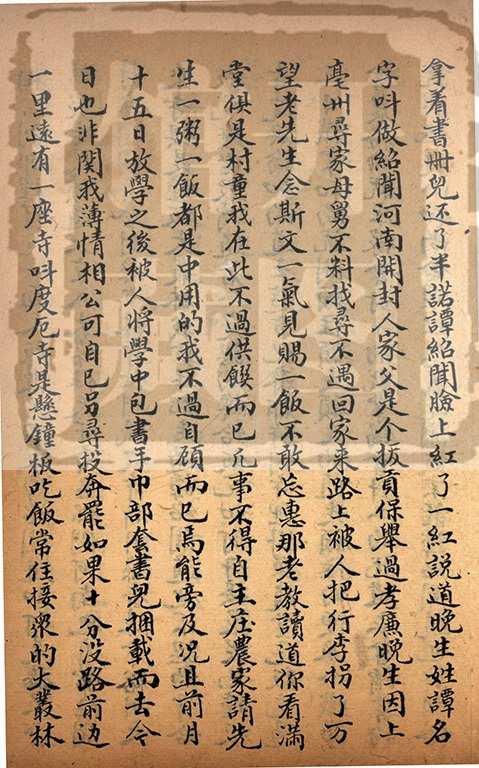 拿着書冊兒还了半諾譚紹聞臉上紅了一紅説道晚生姓譚名
字呌做紹聞河南開封人家父是个拔貢保舉過孝廉晚生因上
亳州尋家母舅不料找尋不遇回家来路上被人把行李拐了万
望老先生念斯文一氣見賜一飯不敢忘惠那老教讀道你看滿
堂俱是村童我在此不過供饌而已凢事不得自主庄農家請先
生一粥一飯都是中用的我不过自顧而已焉能旁及况且前月
十五日放學之後被人將學中包書手巾部套書皃捆載而去今
日也非関我薄情相公可自己另尋投奔罷如果十分没路前边
一里遠有一座寺呌度厄寺是懸鐘板吃飯常住接衆的大叢林